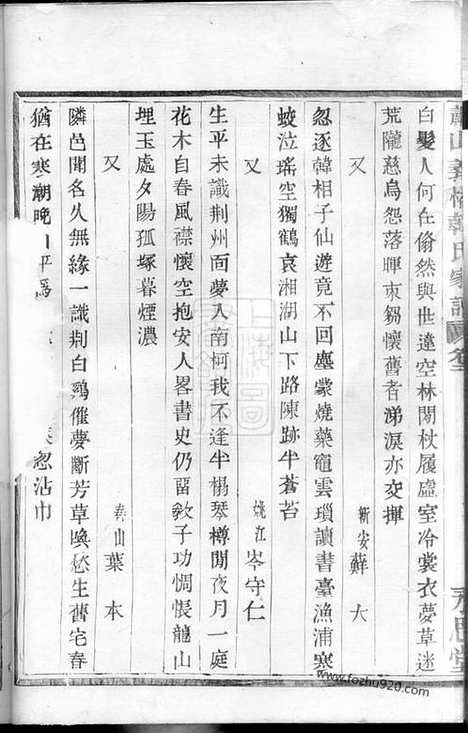 蕭山義橋韓氏家譜
白髮人何在翛然與世違空林閒杖履虛室冷裳衣夢草迷
荒隴慈烏怨落暉束芻懷舊者涕淚亦交揮
又 新安蘇大
忽逐韓相子仙遊竟不回塵蒙燒藥竈雲瑣讀書臺漁浦寒
蛟泣瑤空獨鶴哀湘湖山下路陳跡半蒼苔
又 姚江岑守仁
生平未識荆州面夢入南柯我不逢半榻琴樽閒夜月一庭
花木自春風襟懷空抱安人畧書史仍留敎子功惆悵龍山
埋玉處夕陽孤塚暮煙濃
又 山葉本
隣邑聞名久無緣一識荆白鷄催夢斷芳草喚愁生舊宅春
猶在寒潮晚 平爲 忽沾巾
www.fozhu920.com